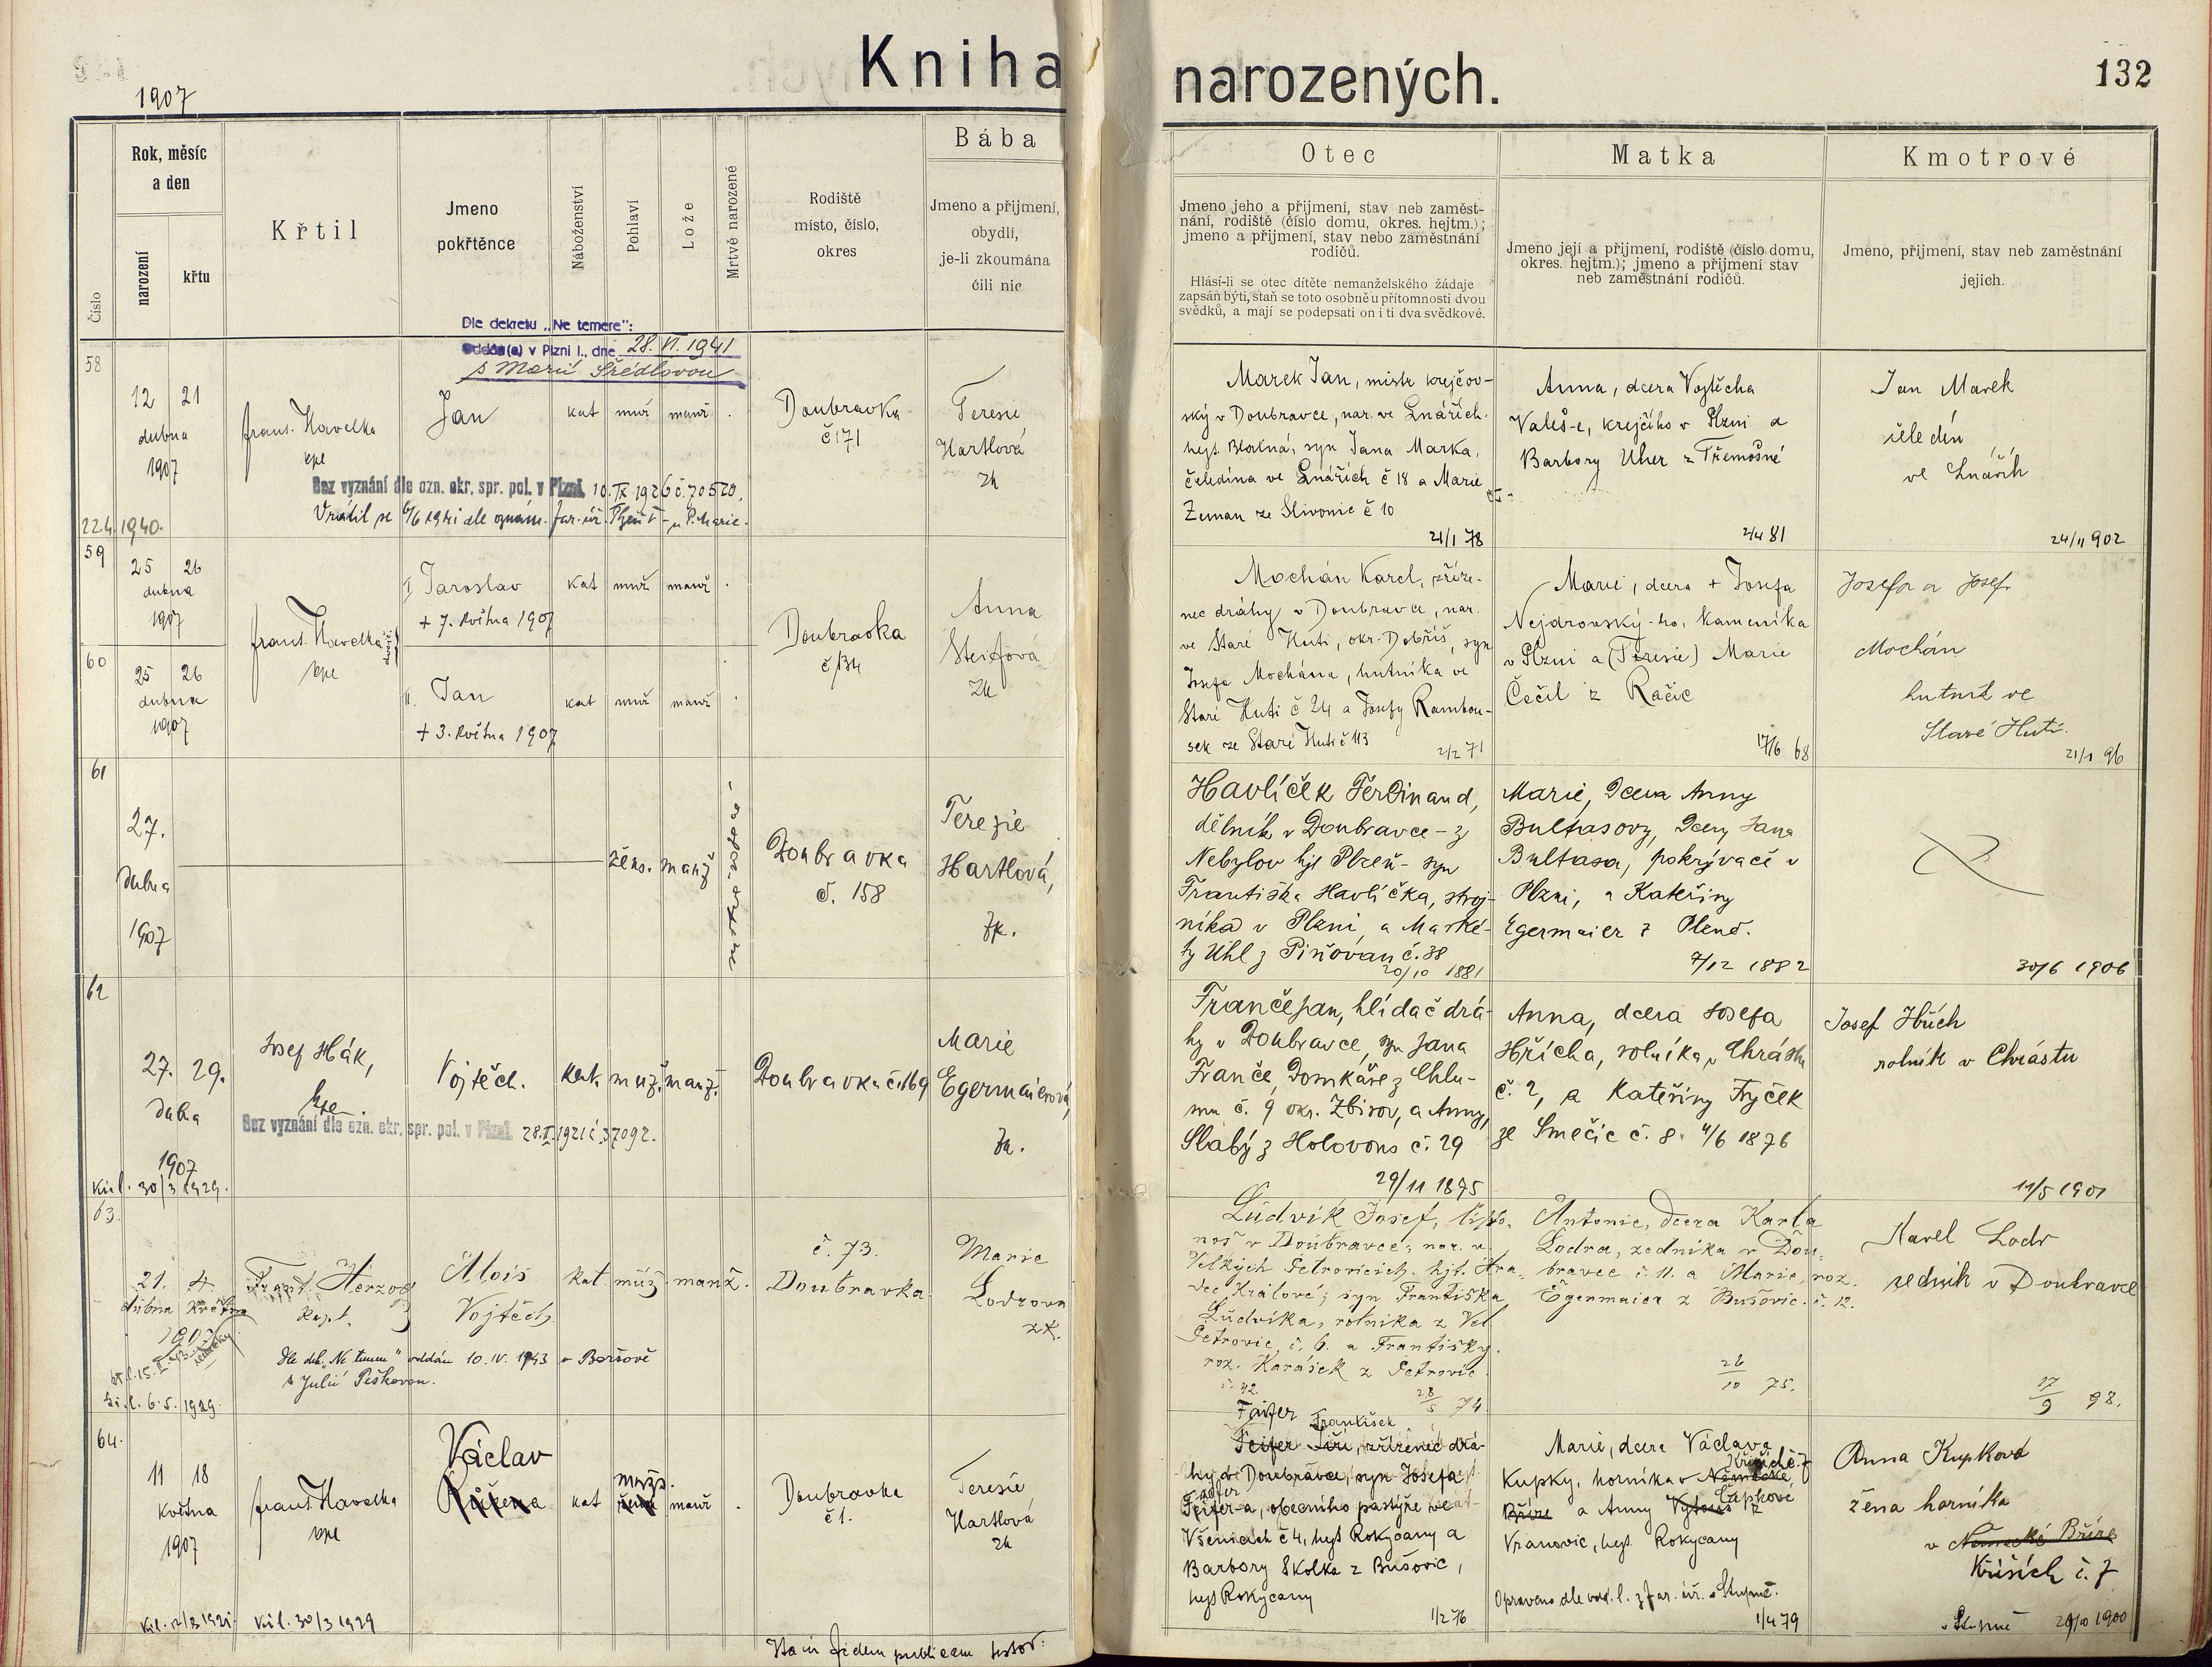 1907
Kniha narozených.
132
Číslo
Rok, měsíc
a den
narození
křtu
Křtil
Jmeno
pokřtěnce
Náboženství
Pohlaví
Lože
Mrtvě narozené
Rodiště
místo, číslo,
okres
Bába
Jmeno a přijmení,
obydlí,
je-li zkoumána
čili nic
Otec
Jmeno jeho a přijmení, stav neb zaměst-
nání, rodiště (číslo domu, okres. hejtm.);
jmeno a přijmení, stav nebo zaměstnání
rodičů.
Hlásí-li se otec dítěte nemanželského žádaje
zapsán býti, staň se toto osobně u přítomnosti dvou
svědků, a mají se podepsati on i ti dva svědkové.
Matka
Jmeno její a přijmení, rodiště (číslo domu,
okres. hejtm.); jmeno a přijmení stav
neb zaměstnání rodičů.
Kmotrové
Jmeno, přijmení, stav neb zaměstnání
jejich.
Dle dekretu „Ne temere":
oddán(a) v Plzni I., dne 28. VI. 1941
s Marií Šrédlovou
58
12 21
dubna
1907
22.4. 1940.
Frant. Havelka
kpe
Jan
kat muž manž .
Doubravka
č 171
Teresie
Hartlová
zk
Bez vyznání dle ozn. okr. spr. pol. v Plzni 10. IX 1926 č. 70520.
Vrátil se 6/6 1941 dle oznám. far. úř. Plzeň I - u P. Marie.
Marek Jan, mistr krejčov-
ský v Doubravce, nar. ve Lnářích.
hejt. Blatná, syn Jana Marka,
čeledína ve Lnářích č 18 a Marie
Zeman ze Slivonic č 10
21/1 78
Anna, dcera Vojtěcha
Valeš-e, krejčího v Plzni a
Barbory Uher z Třemošné
2/4 81
Jan Marek
čeledín
ve Lnářích
24/11 902
59
25 26
dubna
1907
60
25 26
dubna
1907
Frant. Havelka
kpe
I. Jaroslav
+ 7. května 1907
kat muž manž .
II. Jan
+ 3. května 1907
kat muž manž .
Doubravka
č 134
Anna
Steifová
Zk
Mochán Karel, zříze-
nec dráhy v Doubravce, nar.
ve Staré Huti, okr. Dobříš, syn
Josefa Mochána, hutníka ve
Staré Huti č 24 a Josefy Rambou-
sek ze Staré Huti č 113
2/2 71
Marie, dcera + Josefa
Nejdrovský-ho, kameníka
v Plzni a (Teresie) Marie
Čečil z Račic
17/6 68
Josefa a Josef
Mochán
hutník ve
Staré Huti.
21/1 96
61
27.
dubna
1907
žens. manž
Doubravka
č. 158
Terezie
Hartlová,
zk.
Havlíček Ferdinand,
dělník v Doubravce - z
Nebylov hjt Plzeň - syn
Františka Havlíčka, stroj-
níka v Plzni, a Marké-
ty Uhl z Piňovan č. 38
20/10 1881
Marie, dcera Anny
Bultasovy, dcery Jana
Bultasa, pokrývače v
Plzni, a Kateřiny
Egermaier z Plené.
7/12 1882
30/6 1906
62
27. 29.
dubna
1907
Vid. l. 30/3 1929.
Josef Hák,
kpe.
Vojtěch.
Kat. muž. manž.
Doubravka č. 169
Marie
Egermaierová,
zk.
Bez vyznání dle ozn. okr. spr. pol. v Plzni 28. II. 1921 č. 37092.
Franče Jan, hlídač drá-
hy v Doubravce, syn Jana
Franče, domkáře z Chlu-
mu č. 9 okr. Zbirov, a Anny,
Slabý z Holovous č. 29
29/11 1875
Anna, dcera Josefa
Hřícha, rolníka v Chrástu
č. 2, a Kateřiny Fryček
ze Smečic č. 8. 4/6 1876
Josef Hřích
rolník v Chrástu
11/5 1901
63.
21. 4
dubna května
1907
l. 6. 5. 1929.
Frant. Herzog
kapl.
Alois
Vojtěch
kat. muž. manž.
č. 73.
Doubravka
Marie
Lodrova
zk.
Dle dek. „Ne temere" oddán 10. IV. 1943 v Boršově
s Julií Peškovou.
Ludvík Josef, listo-
noš v Doubravce, nar. v
Velkých Petrovicích. hjt. Hra-
dec Králové; syn Františka
Ludvíka, rolníka z Vel
Petrovic, č. 6. a Františky
roz. Karásek z Petrovic
č. 42. 28/5 74
Antonie, dcera Karla
Lodra, zedníka v Dou-
bravce č. 11. a Marie, roz.
Egermaier z Bušovic. č. 12.
26/10 75.
Karel Lodr
zedník v Doubravce
17/9 98.
64.
11 18
května
1907
Vid. l. 30/3 1929
Frant. Havelka
kpe
Václav
Růžena
kat mužs. manž .
Doubravka
č 1.
Teresie
Hartlová
zk
Faifer František
Feifer Jiří, zřízenec drá-
hy v Doubravce, syn Josefa
Feifer-a, obecního pastýře ve
Všenicích č 4, hejt Rokycany a
Barbory Skolka z Bušovic,
hejt Rokycany
1/2 76
Marie, dcera Václava
Kupky, horníka v Německé Kříších č. 7
Bříze a Anny Čapkové z
Vranovic, hejt. Rokycany
Opraveno dle vod. l. z far. úř. v Stupně.
1/4 79
Anna Kupková
žena horníka
v Německé Bříze
Kříších č. 7
v Stupně 29/10 1900
Ita in fidem publicam testor: